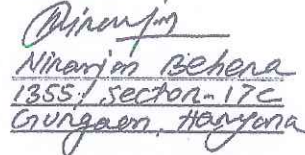 Niranjan
Niranjan Behera
1355, Sector-17C
Gurgaon, Haryana